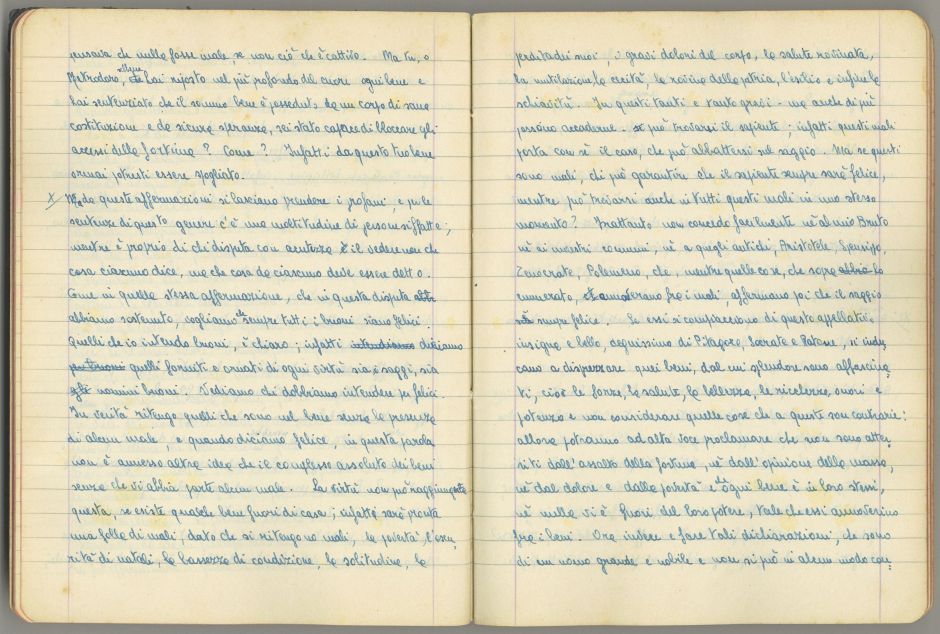 pensava che nulla fosse male, se non ciò che è cattivo. Ma tu, o
Metrodoro, che hai riposto nel più profondo del cuore ogni bene e
hai sentenziato che il sommo bene è posseduto da un corpo di sana
costituzione e da sicura speranza, sei stato capace di bloccare gli
accessi della fortuna? Come? Infatti da questo tuo bene
ormai potresti essere spogliato.
x Ma da queste affermazioni si lasciano prendere i profani, e per le
sentenze di questo genere c'è una moltitudine di persone siffatte;
mentre è proprio di chi disputa con acutezza il vedere non che
cosa ciascuno dice, ma che cosa da ciascuno deve essere detto.
Come in quella stessa affermazione, che in questa disputa
abbiamo sostenuto, vogliamo che sempre tutti i buoni siano felici.
Quelli che io intendo buoni, è chiaro; infatti intendiamo diciamo
quelli forniti e ornati di ogni virtù sia saggi, sia
uomini buoni. Vediamo chi dobbiamo intendere per felici.
In verità ritengo quelli che sono nel bene senza la presenza
di alcun male, e quando diciamo felice, in questa parola
non è annesso altra idea che il complesso assoluto dei beni
senza che vi abbia parte alcun male. La virtù non può raggiungere
questa, se esiste qualche bene fuori di essa; infatti sarà pronta
una folla di mali, dato che si ritengono mali, la povertà, l'oscu,
rità di natali, la bassezza di condizione, la solitudine, la
perdita dei suoi, i gravi dolori del corpo, la salute rovinata,
la mutilazione, la cecità, la rovina della patria, l'esilio e infine la
schiavitù. In questi tanti e tanto gravi - ma anche di più
possono accaderne - può trovarsi il sapiente; infatti questi mali
porta con sè il caso, che può abbattersi sul saggio. Ma se questi
sono mali, chi può garantire che il sapiente sempre sarà felice,
mentre può trovarsi anche in tutti questi mali in uno stesso
momento? Frattanto non concedo facilmente nè al mio Bruto
nè ai maestri comuni, nè a quegli antichi, Aristotele, Speusippo,
Zenocrate, Polemone, che, mentre quelle cose, che sopra abbia ho
enumerato, annoverano fra i mali, affermano poi che il saggio
sia sempre felice. Se essi si compiacciono di questo appellativo
insigne e bello, degnissimo di Pitagora, Socrate e Platone, si indu,
cano a disprezzare quei beni, dal cui splendore sono affascina,
ti, cioè la forza, la salute, la bellezza, la ricchezza, onori e
potenza e non considerare quelle cose che a queste son contrarie:
allora potranno ad alta voce proclamare che non sono atter,
riti dall'assalto della fortuna, nè dall'opinione della massa,
nè dal dolore e dalla povertà e che ogni bene è in loro stessi,
nè nulla vi è fuori del loro potere, tale che essi annoverino
fra i beni. Ora invece e fare tali dichiarazioni, che sono
di un uomo grande e nobile e non si può in alcun modo con,